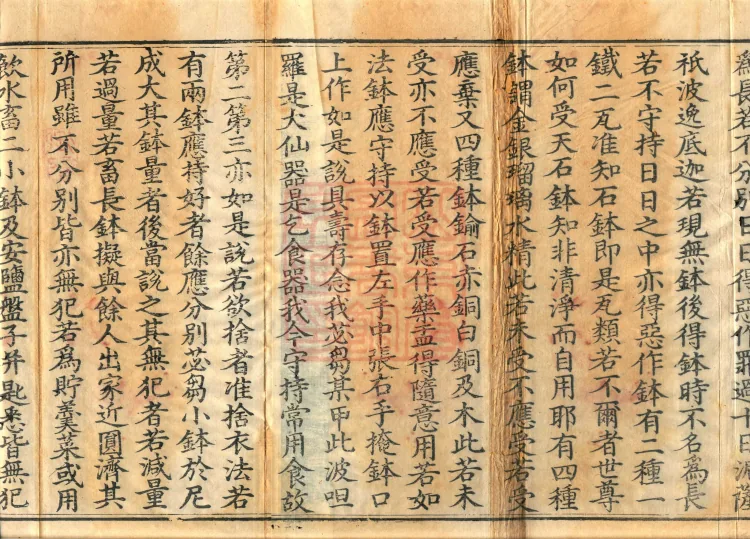 為長若不分別日日得惡作罪過十日波薩
祇波逸底迦若現無鉢後得鉢時不名為長
若不守持日日之中亦得惡作鉢有二種一
鐵二瓦准知石鉢即是瓦類若不爾者世尊
如何受天石鉢知非清淨而自用耶有四種
鉢謂金銀瑠璃水精此若未受不應受若受
應棄又四種鉢鍮石赤銅白銅及木此若未
受亦不應受若受應作藥盂得隨意用若如
法鉢應守持以鉢置左手中張右手掩鉢口
上作如是說具壽存念我苾芻某甲此波呾
羅是大仙器是乞食器我今守持常用食故
第二第三亦如是說若欲捨者准捨衣法若
有兩鉢應持好者餘應分別苾芻小鉢於尼
成大其鉢量者後當說之其無犯者若減量
若過量若畜長鉢擬與餘人出家近圓濟其
所用雖不分別皆亦無犯若為貯羹菜或用
飲水畜二小鉢及安鹽盤子并匙悉皆無犯